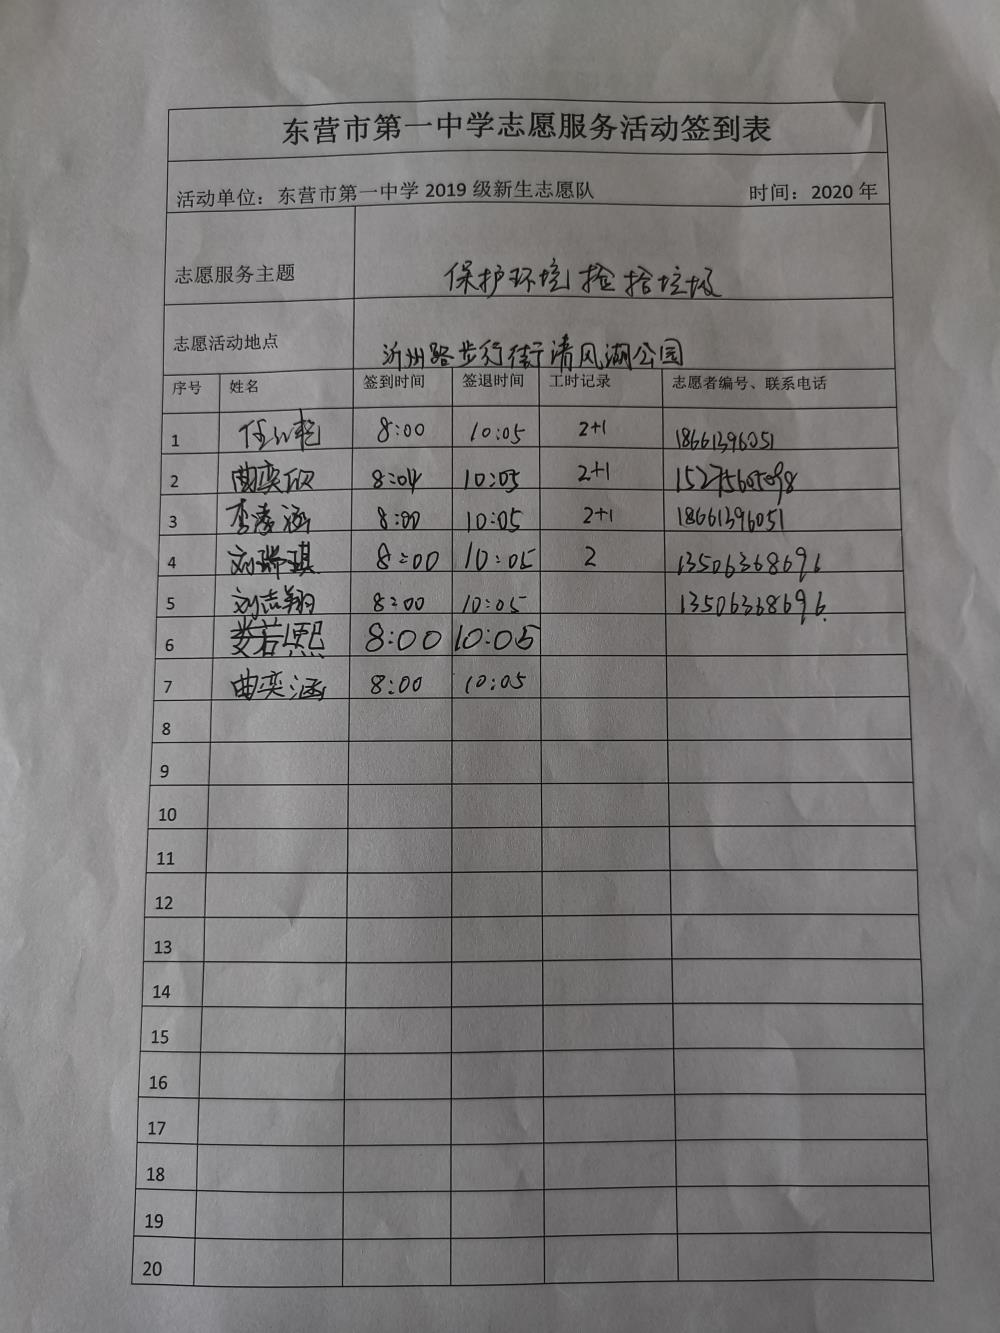 东营市第一中学志愿服务活动签到表
活动单位：东营市第一中学 2019 级新生志愿队 时间：2020 年
志愿服务主题 保护环境 捡拾垃圾
志愿活动地点 沂州路步行街清风湖公园
序号 姓名 签到时间 签退时间 工时记录 志愿者编号、联系电话
1 任 8:00 10:05 2+1 18661396051
2 曲奕欣 8:04 10:05 2+1
3 李涵 8:00 10:05 2+1 18661396051
4 刘瑞琪 8:00 10:05 2 13506368696
5 刘志翔 8:00 10:05 13506368696
6 娄若熙 8:00 10:05
7 曲奕涵 8:00 10:05
8
9
10
11
12
13
14
15
16
17
18
19
20